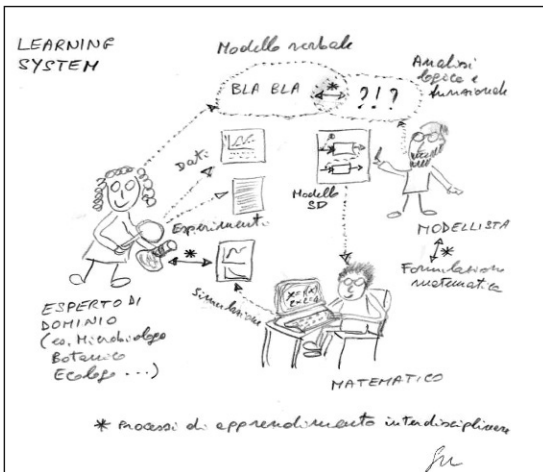 LEARNING
SYSTEM
Modello verbale
BLA BLA
*
?!?
Analisi
logica e
funzionale
Dati
Esperimenti
Modello
SD
MODELLISTA
*
Formulazione
matematica
*
Simulazione
ESPERTO DI
DOMINIO
(es. Microbiologo
Botanico
Ecologo ...)
MATEMATICO
* Processi di apprendimento interdisciplinare